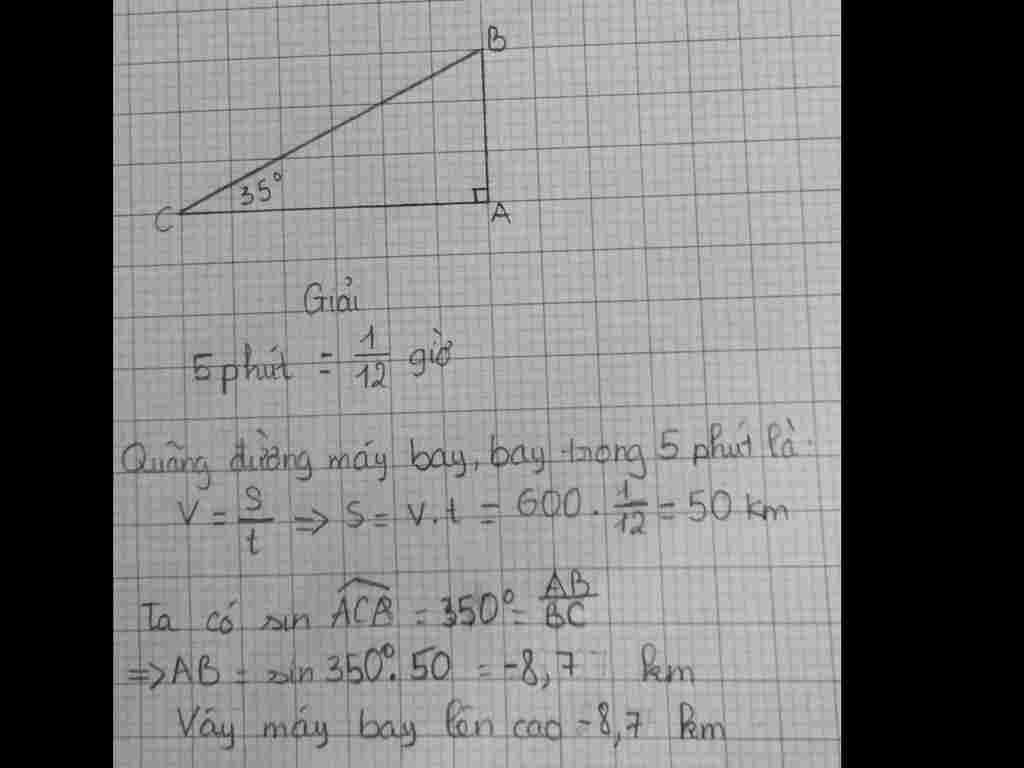 B
35°
C
A
Giải
5 phút = 1/12 giờ
Quãng đường máy bay, bay trong 5 phút là:
V = S/t => S = v.t = 600 . 1/12 = 50 km
Ta có sin ACB = 350° = AB/BC
=> AB = sin 350° . 50 = -8,7 km
Vậy máy bay lên cao -8,7 km